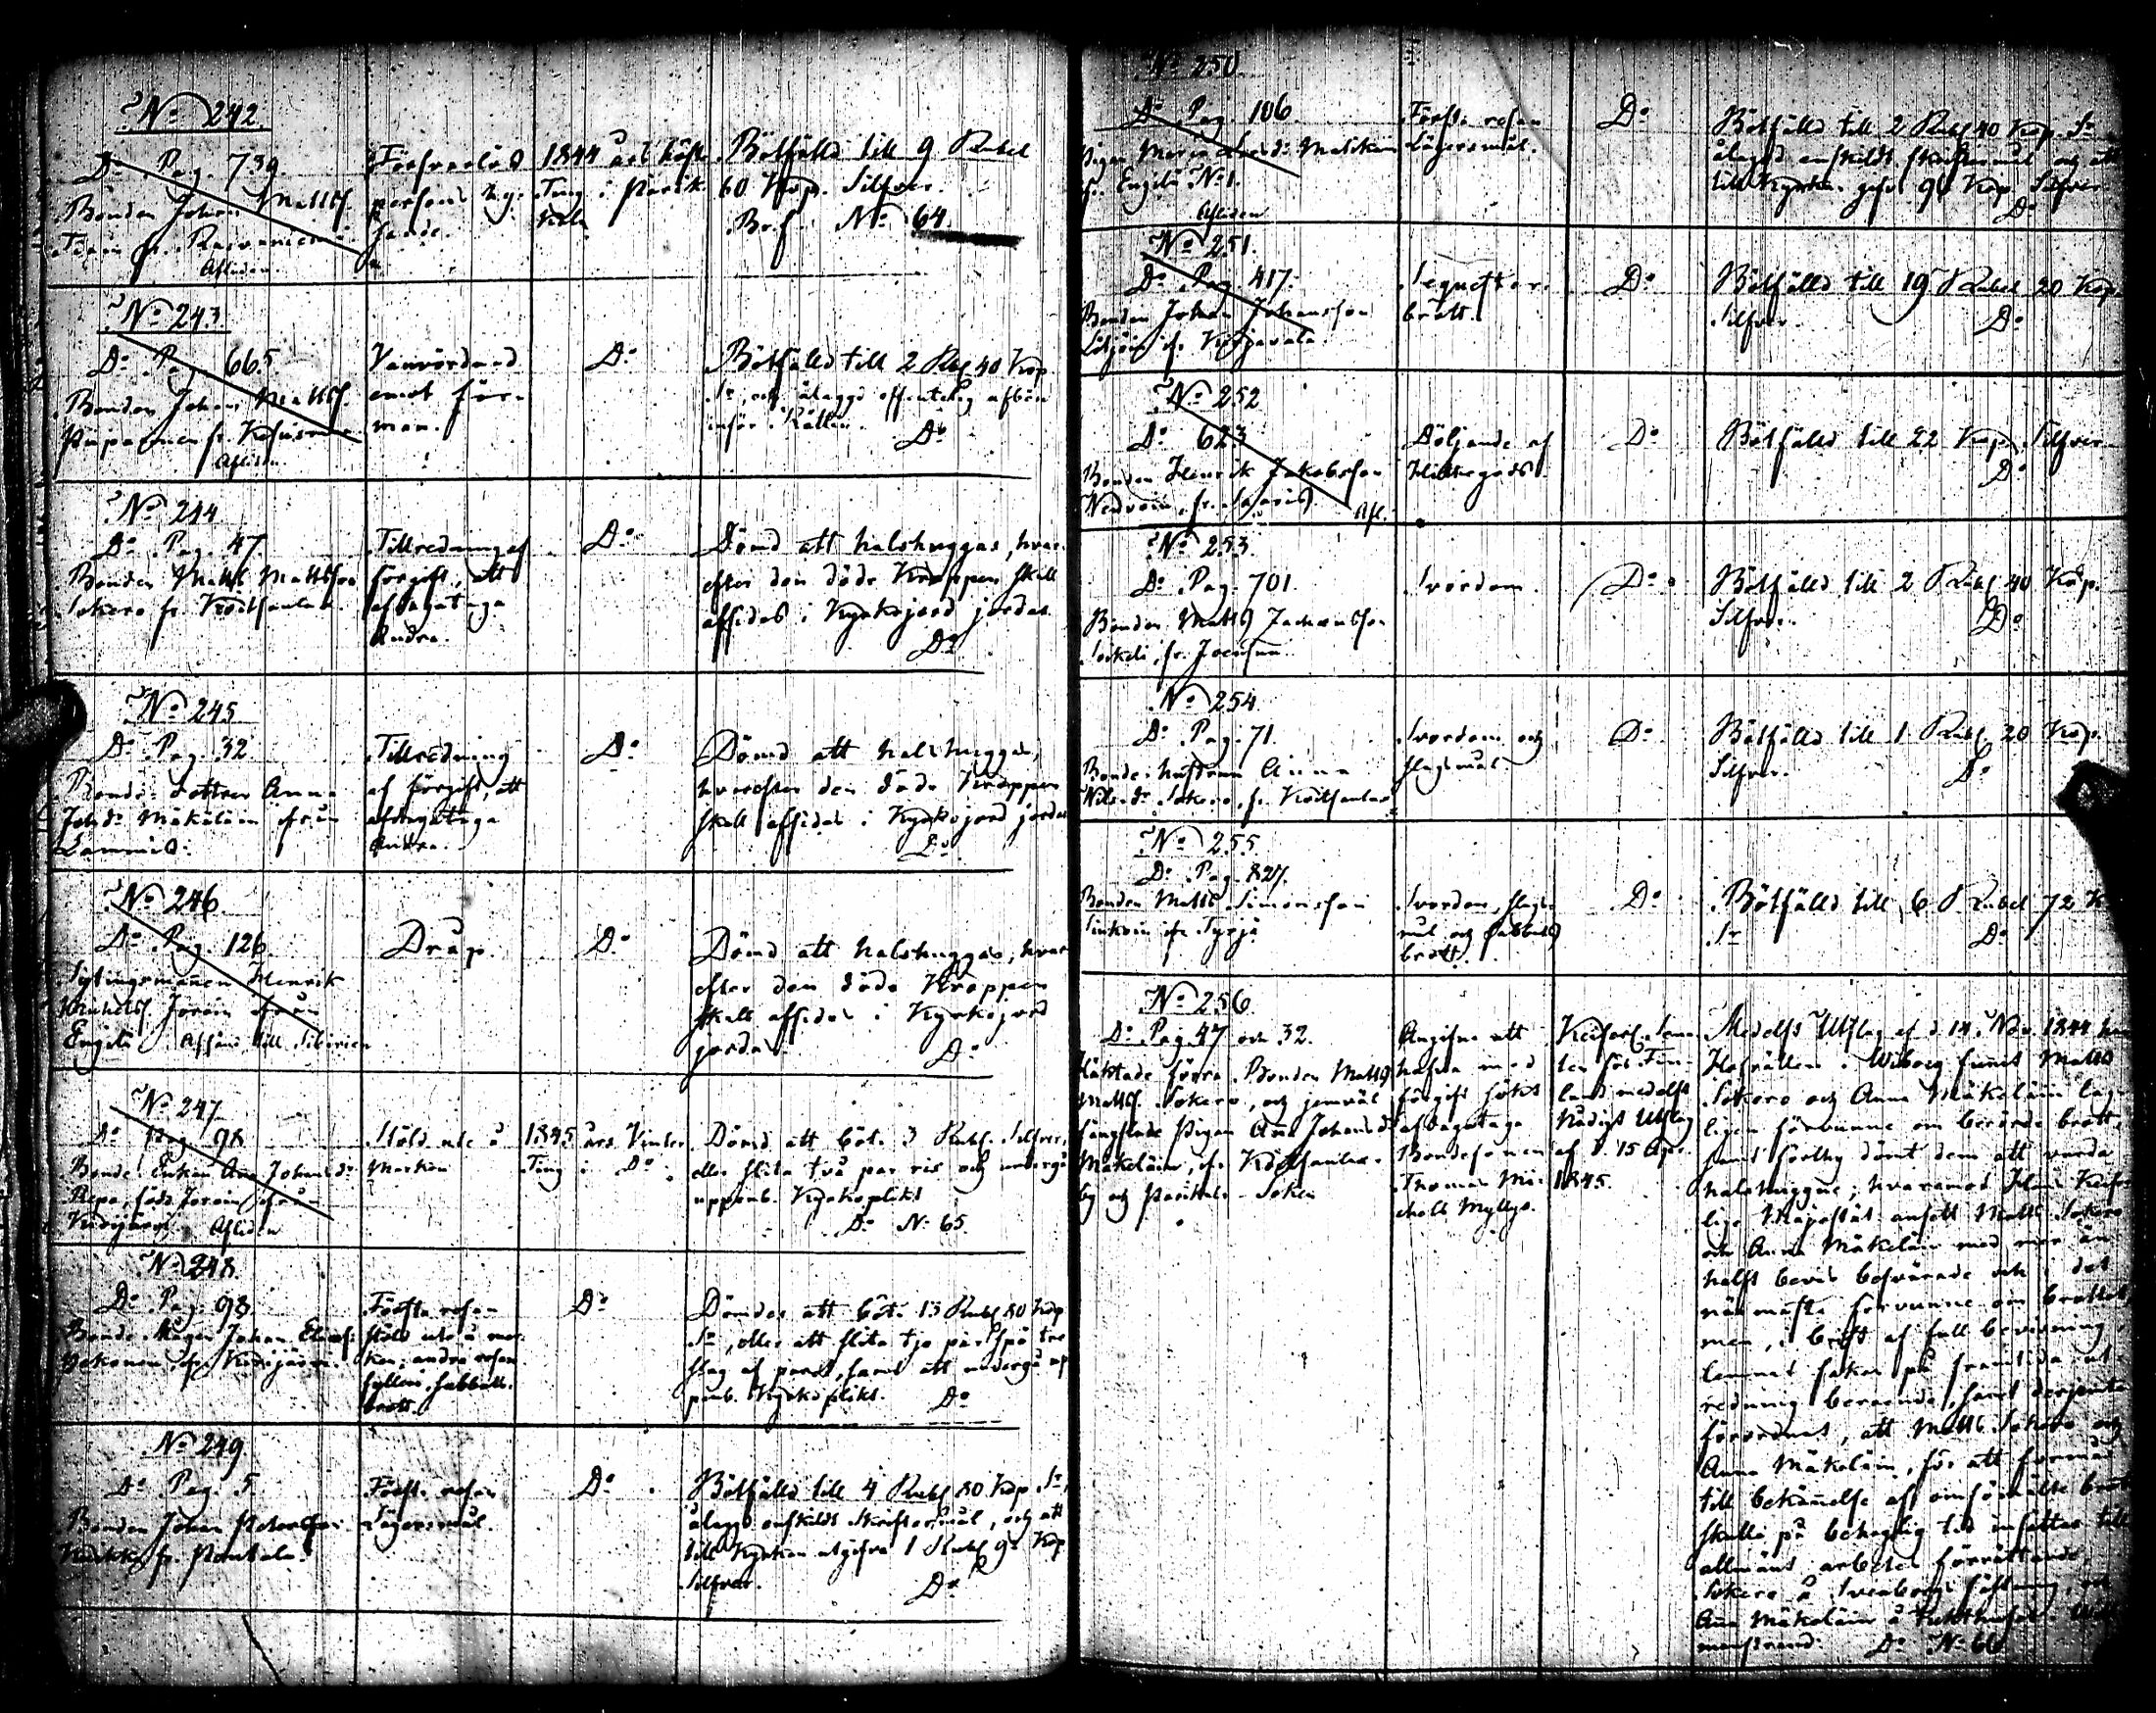 No 242.
Do Pag. 739.
Bonden Johan Mattss.
Toroin fr.
Afliden
Försvarslös
persons hy-
sande.
1844 års höste
Ting i Parik-
kala
Bötfälld till 9 Rubel
60 Kop. Silfver.
Bref No 64.
No 243
Do Pag 665
Bonden Johan Mattss.
fr.
Afliden
Vanvördnad
emot för-
man.
Do
Bötfälld till 2 Rub. 40 Kop.
Sr, och ålagd offentelig afbön
inför Rätten. Do
No 244
Do Pag. 47
Bonden Matts Mattsson
Sokero fr. Koitsanlax.
Tillredning af
förgift, att
afdagataga
Andra.
Do
Dömd att halshuggas, hvar-
efter den döde Kroppen skall
afsides i Kyrkojord jordas.
Do
No 245
Do Pag. 32
Bonde-dottren Anna
Johsdr Mäkeläin ifrån
Lammis.
Tillredning
af förgift, att
afdagataga
Andra.
Do
Dömd att halshuggas,
hvarefter den döde Kroppen
skall afsides i Kyrkojord jordas
Do
No 246
Do Pag. 126
Sytingsmannen Henrik
Michelss. Joroin ifrån
Engilä Afsänd till Siberien
Dråp.
Do
Dömd att halshuggas, hvar
efter den döde Kroppen
skall afsides i Kyrkojord
jordas. Do
No 247
Do Pag 98
Bonde-Enkan Ana Johansdr
Repo, född Joroin ifrån
Kirjjärvi. Afliden
Stöld ute å
Marken
1845 års Vinter
Ting i Do
Dömd att böta 3 Rub. Silfver,
eller slita två par ris och undergå
uppenb. Kyrkoplikt
Do No 65.
No 248.
Do Pag. 98.
Bonde-Mågen Johan Eliass.
Pekonen fr. Kirjjärvi.
Första resan
stöld ute å mar-
ken, andra resan
fylleri, sabbats-
brott.
Do
Dömdes att böta 13 Rub. 80 Kop
Sr, eller att slita tjo par spö tre
slag af paret, samt att undergå up
penb. Kyrkoplikt. Do
No 249
Do Pag. 5
Bonden Johan Petersson
Kukko fr. Pontala.
Första resan
Lägersmål.
Do
Bötfälld till 4 Rub. 80 Kop. Sr,
ålagd enskildt Skriftermål, och att
till Kyrkan utgifva 1 Rub. 92 Kop
Silfver. Do
No 250
Do Pag. 106.
Pigan Maria Matikain
fr. Engilä No 1.
Afliden
Första resan
Lägersmål.
Do
Bötfälld till 2 Rub 40 Kop. Sr
ålagd enskildt skriftermål och att
till Kyrkan gifva 96 Kop. Silfver
Do
No 251.
Do Pag. 417.
Bonden Johan Johansson
fr. Kirjavala.
Sequester-
brott.
Do
Bötfälld till 19 Rubel 20 Kop.
Silfver. Do
No 252
Do 623
Bonden Henrik Jakobsson
fr.
Afl.
Döljande af
Hittegods
Do
Bötfälld till 22 Kop. Silfver
Do
No 253.
Do Pag. 701.
Bonden Matts Zachariasson
fr. Joensuu.
Svordom.
Do
Bötfälld till 2 Rub. 40 Kop.
Silfver. Do
No 254
Do Pag. 71.
Bonde-hustrun Anna
Nilsdr Sokero, fr. Koitsanlax
Svordom och
slagsmål.
Do
Bötfälld till 1 Rub. 20 Kop.
Silfver. Do
No 255
Do Pag. 827.
Bonden Matts Simonsson
Sinkoin fr. Tyrjä
Svordom, slags-
mål och sabbats
brott.
Do
Bötfälld till 6 Rubel 72 K
Sr Do
No 256
Do Pag. 47 och 32.
Häktade förra Bonden Matts
Matts. Sokero, och jemväl
fängslade Pigan Ana Johansdr
Mäkeläin, fr. Koitsanlax-
by och Parikkala-Soken
Angifne att
hafva med
förgift sökt
afdagataga
Bondesonen
Thomas Mi-
chelss Myllys.
Keiserl. Sena-
ten för Fin-
land medelst
Nådigt Utslag
af d. 15 Apr.
1845.
Medelst Utslag af d. 14 Nov. 1844 har
Hofrätten i Wiborg funnit Matts
Sokero och Anna Mäkeläin lag-
ligen förvunne om berörde brott,
samt förthy dömt dem att varda
halshuggne; hvaremot Hans Keiser-
lige Majestät ansett Matts Sokero
och Anna Mäkeläin med mer än
halft bevis besvärade och i det
närmaste förvunne om brottet,
men, i brist af full bevisning,
lemnat saken på framtida ut-
redning beroende, samt derjemte
förordnat, att Matts Sokero och
Anna Mäkeläin, för att förmås
till bekännelse af omförmälte brott
skulle på behaglig tid insättas till
allmänt arbetes förrättande,
Sokero å Sveaborgs fästning, och
Ana Mäkeläin å Tukthuset i Will-
manstrand. Do No 66